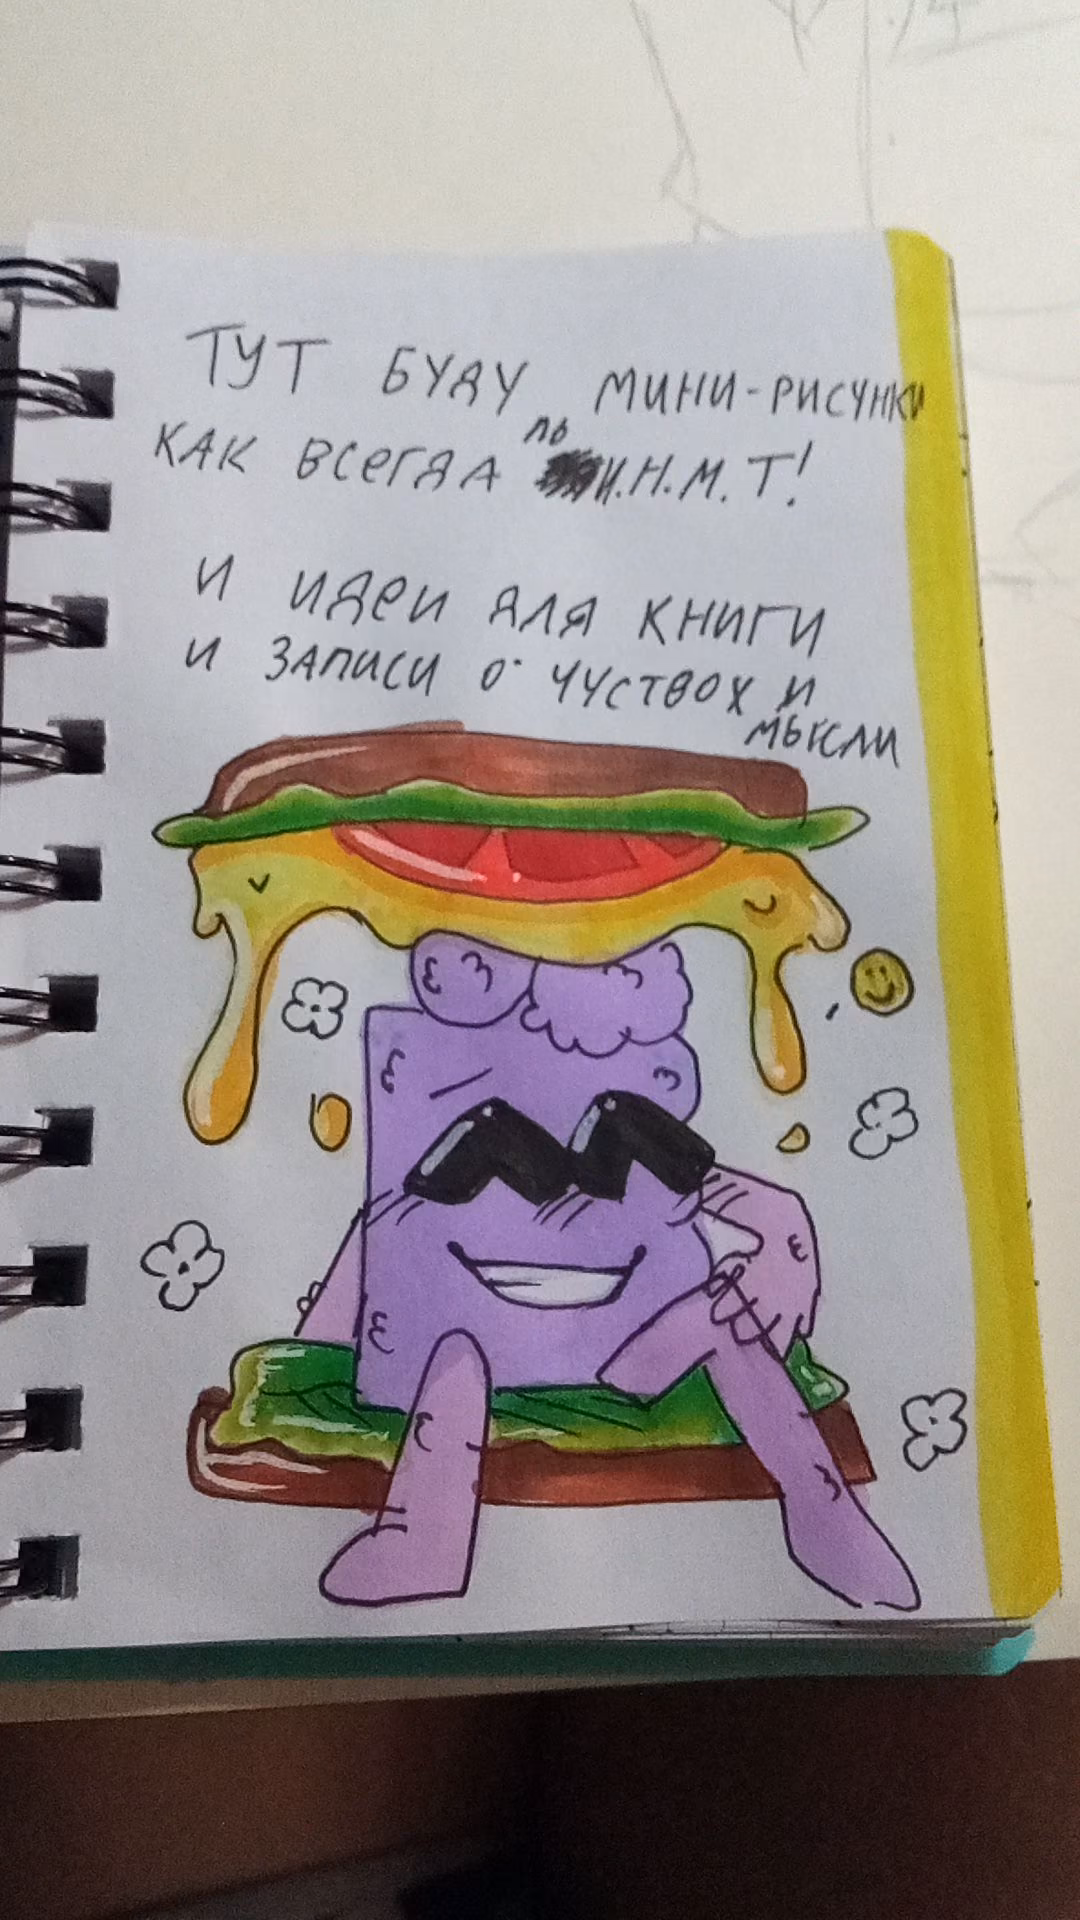 ТУТ БУДУ МИНИ-РИСУНКИ
КАК ВСЕГДА ПО И.Н.М.Т!
И ИДЕИ ДЛЯ КНИГИ
И ЗАПИСИ О ЧУСТВОХ И
МЫСЛИ